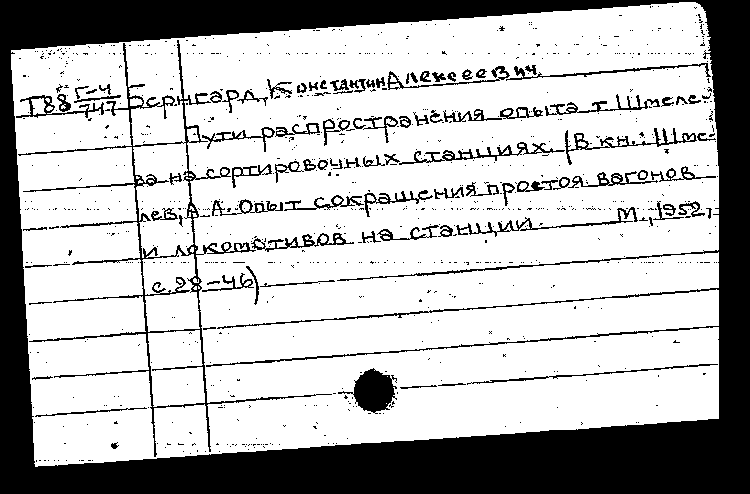 Т.88 Г-4/747 Бернгард, Константин Алексеевич.
Пути распространения опыта т. Шмеле-
ва на сортировочных станциях. (В кн.: Шме-
лев, А.А. Опыт сокращения простоя вагонов
и локомотивов на станции. М., 1952,
с. 28-46).